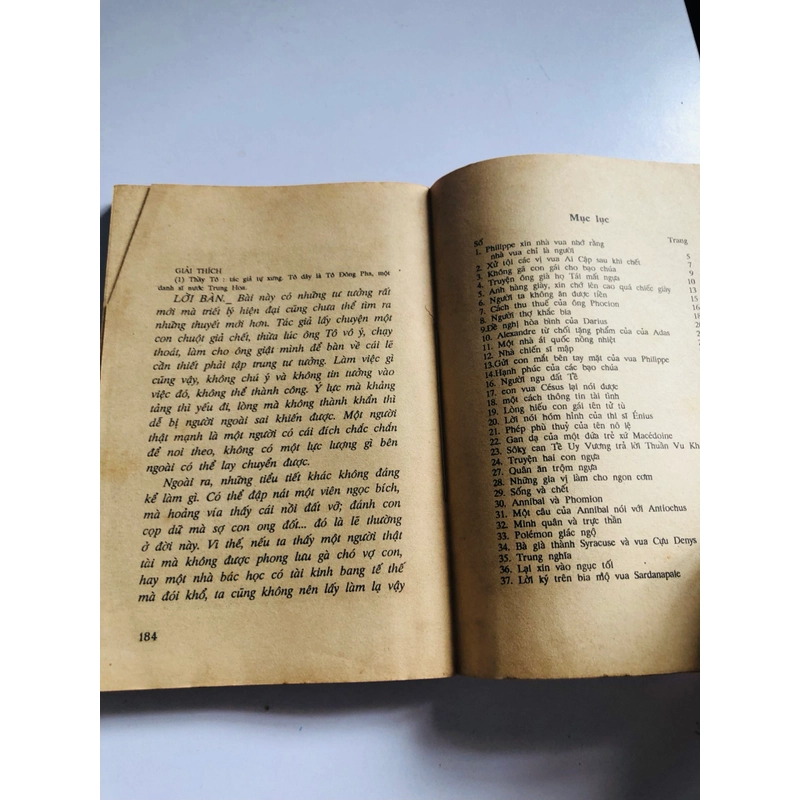 GIẢI THÍCH
(1) Thầy Tô : tác giả tự xưng. Tô đây là Tô Đông Pha, một
danh sĩ nước Trung Hoa.
LỜI BÀN._ Bài này có những tư tưởng rất
mới mà triết lý hiện đại cũng chưa thể tìm ra
những thuyết mới hơn. Tác giả lấy chuyện một
con chuột giả chết, thừa lúc ông Tô vô ý, chạy
thoát, làm cho ông giật mình để bàn về cái lẽ
cần thiết phải tập trung tư tưởng. Làm việc gì
cũng vậy, không chú ý và không tin tưởng vào
việc đó, không thể thành công. Ý lực mà khảng
tảng thì yếu đi, lòng mà không thành khẩn thì
dễ bị người ngoài sai khiến được. Một người
thật mạnh là một người có cái đích chắc chắn
để noi theo, không có một lực lượng gì bên
ngoài có thể lay chuyển được.
Ngoài ra, những tiểu tiết khác không đáng
kể làm gì. Có thể đập nát một viên ngọc bích,
mà hoảng vía thấy cái nồi đất vỡ; đánh con
cọp dữ mà sợ con ong đốt... đó là lẽ thường
ở đời này. Vì thế, nếu ta thấy một người thật
tài mà không được phong lưu gà chó vợ con,
hay một nhà bác học có tài kinh bang tế thế
mà đói khổ, ta cũng không nên lấy làm lạ vậy
184
Mục lục
Số Trang
1. Philippe xin nhà vua nhớ rằng
nhà vua chỉ là người 5
2. Xử tội các vị vua Ai Cập sau khi chết 7
3. Không gả con gái cho bạo chúa 9
4. Truyện ông già họ Tái mất ngựa 10
5. Anh hàng giày, xin chớ lên cao quá chiếc giày 13
6. Người ta không ăn được tiền 15
7. Cách thu thuế của ông Phocion
8. Người thợ khắc bia
9.Đề nghị hòa bình của Darius
10. Alexandre từ chối tặng phẩm của của Adas
11. Một nhà ái quốc nồng nhiệt
12. Nhà chiến sĩ mập
13.Gửi con mắt bên tay mặt của vua Philippe
14.Hạnh phúc của các bạo chúa
16. Người ngu đất Tề
17. con vua Césus lại nói được
18. một cách thông tài tình
19. Lòng hiếu con gái tên tử tù
20. Lời nói hóm hỉnh của thi sĩ Énius
21. Phép phù thuỷ của tên nô lệ
22. Gan dạ của một đứa trẻ xứ Macédoine
23. Sôky can Tề Uy Vương trả lời Thuần Vu Kh
24. Truyện hai con ngựa
27. Quân ăn trộm ngựa
28. Những gia vị làm cho ngon cơm
29. Sống và chết
30. Annibal và Phomion
31. Một câu của Annibal nói với Antiochus
32. Minh quân và trực thần
33. Polémon giác ngộ
34. Bà già thành Syracuse và vua Cựu Denys
35. Trung nghĩa
36. Lại xin vào ngục tối
37. Lời ký trên bia mộ vua Sardanapale